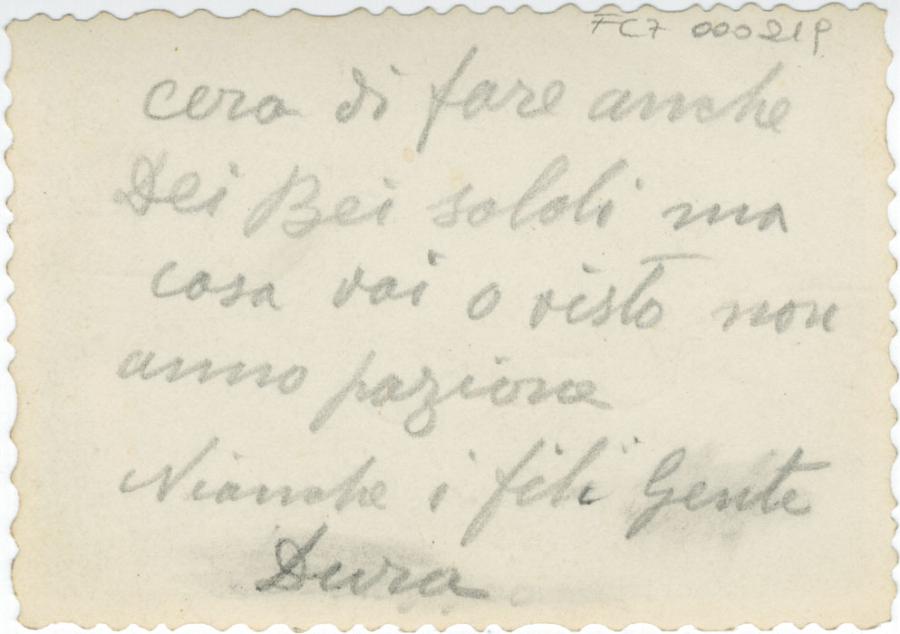 FC7 000219
cera di fare anche
Dei Bei soldi ma
casa vai o visto non
anno pazione
Nianche i fili Gente
Dura